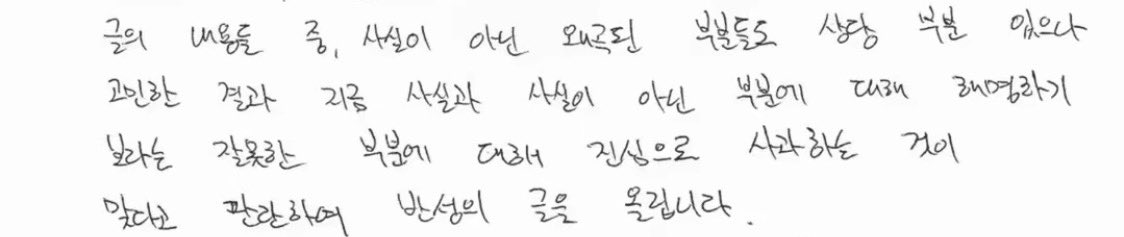 글의 내용들 중, 사실이 아닌 왜곡된 부분들도 상당 부분 있으나
고민한 결과 지금 사실과 사실이 아닌 부분에 대해 해명하기
보다는 잘못한 부분에 대해서 진심으로 사과하는 것이
맞다고 판단하여 반성의 글을 올립니다.